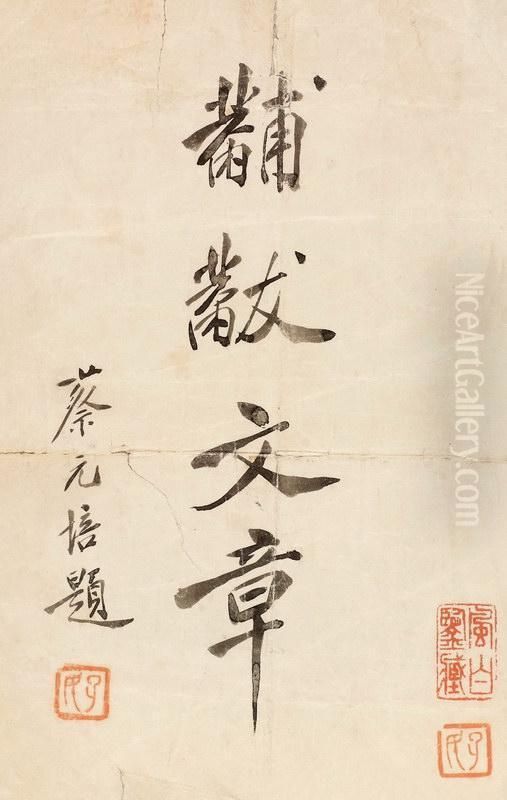 黼黻文章
蔡元培題
鑒藏
NiceArtGallery.com